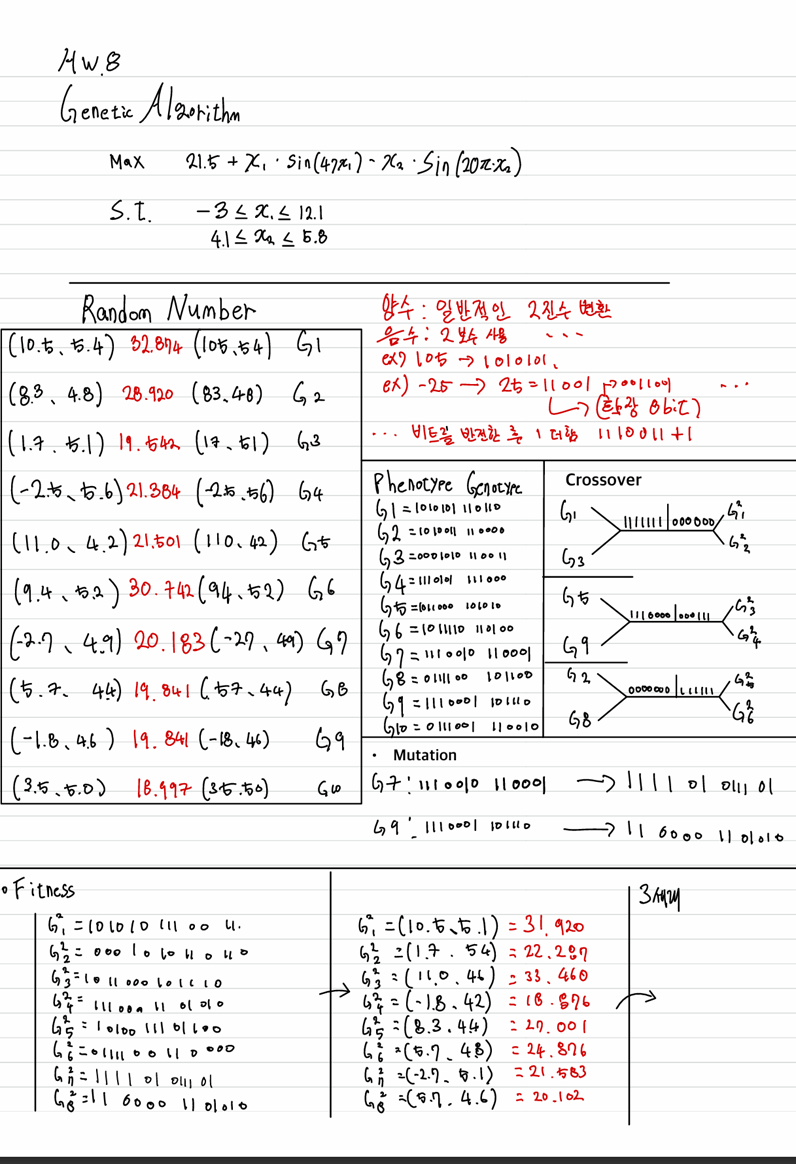 HW.8
Genetic Algorithm
Max 21.5 + x₁ · sin(4πx₁) - x₂ · sin(20π·x₂)
S.T. -3 ≤ x₁ ≤ 12.1
4.1 ≤ x₂ ≤ 5.8
Random Number
(10.5, 5.4) 32.874 (105, 54) G1
(8.3, 4.8) 28.920 (83, 48) G2
(1.7, 5.1) 19.542 (17, 51) G3
(-2.5, 5.6) 21.384 (-25, 56) G4
(11.0, 4.2) 21.501 (110, 42) G5
(9.4, 5.2) 30.742 (94, 52) G6
(-2.7, 4.9) 20.183 (-27, 49) G7
(5.7, 4.4) 19.841 (57, 44) G8
(-1.8, 4.6) 19.841 (-18, 46) G9
(3.5, 5.0) 18.997 (35, 50) G10
양수 : 일반적인 2진수 변환
음수 : 2보수 사용 ...
ex) 105 → 1010101,
ex) -25 → 25 = 11001 → 0011001 ...
(확장 8bit)
... 비트를 반전한 후 1 더함 1110011+1
Phenotype Genotype
G1 = 1010101 110110
G2 = 1010011 110000
G3 = 0001010 110011
G4 = 1110101 111000
G5 = 1011000 101010
G6 = 101110 110100
G7 = 1110010 110001
G8 = 0111100 101100
G9 = 1110001 101110
G10 = 0111001 110010
Crossover
G1 G3 1111111 000000 G²₁ G²₂
G5 G9 1110000 000111 G²₃ G²₄
G2 G8 0000000 111111 G²₅ G²₆
· Mutation
G7 : 1110010 110001 → 1111 01 0111 01
G9 : 1110001 101110 → 11 0000 1101010
• Fitness
G²₁ = 101010 111 00 11.
G²₂ = 000 10 10 11 0 110
G²₃ = 1011000 101110
G²₅ = 10100 111 01100
G²₆ = 01111 00 110 000
G²₇ = 1111 01 0111 01
G²₈ = 11 0000 1101010
→
G²₁ = (10.5, 5.1) = 31.920
G²₂ = (1.7, 54) = 22.287
G²₃ = (11.0, 46) = 33.460
G²₄ = (-1.8, 42) = 18.876
G²₅ = (8.3, 44) = 27.001
G²₆ = (5.7, 48) = 24.876
G²₇ = (-2.7, 5.1) = 21.583
G²₈ = (5.7, 4.6) = 20.102
→